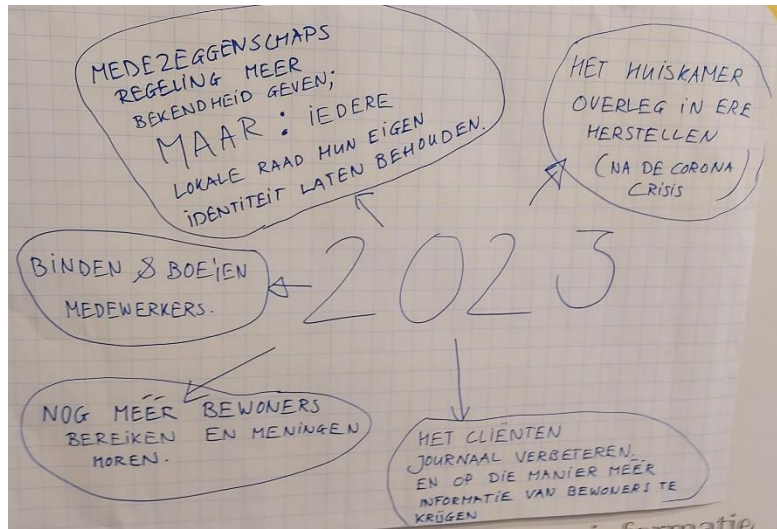 MEDEZEGGENSCHAPS
REGELING MEER
BEKENDHEID GEVEN;
MAAR: IEDERE
LOKALE RAAD HUN EIGEN
IDENTITEIT LATEN BEHOUDEN.
HET HUISKAMER
OVERLEG IN ERE
HERSTELLEN
(NA DE CORONA)
CRISIS
BINDEN & BOEIEN
MEDEWERKERS.
2023
NOG MÉÉR BEWONERS
BEREIKEN EN MENINGEN
HOREN.
HET CLIËNTEN
JOURNAAL VERBETEREN.
EN OP DIE MANIER MÉÉR
INFORMATIE VAN BEWONERS TE
KRIJGEN